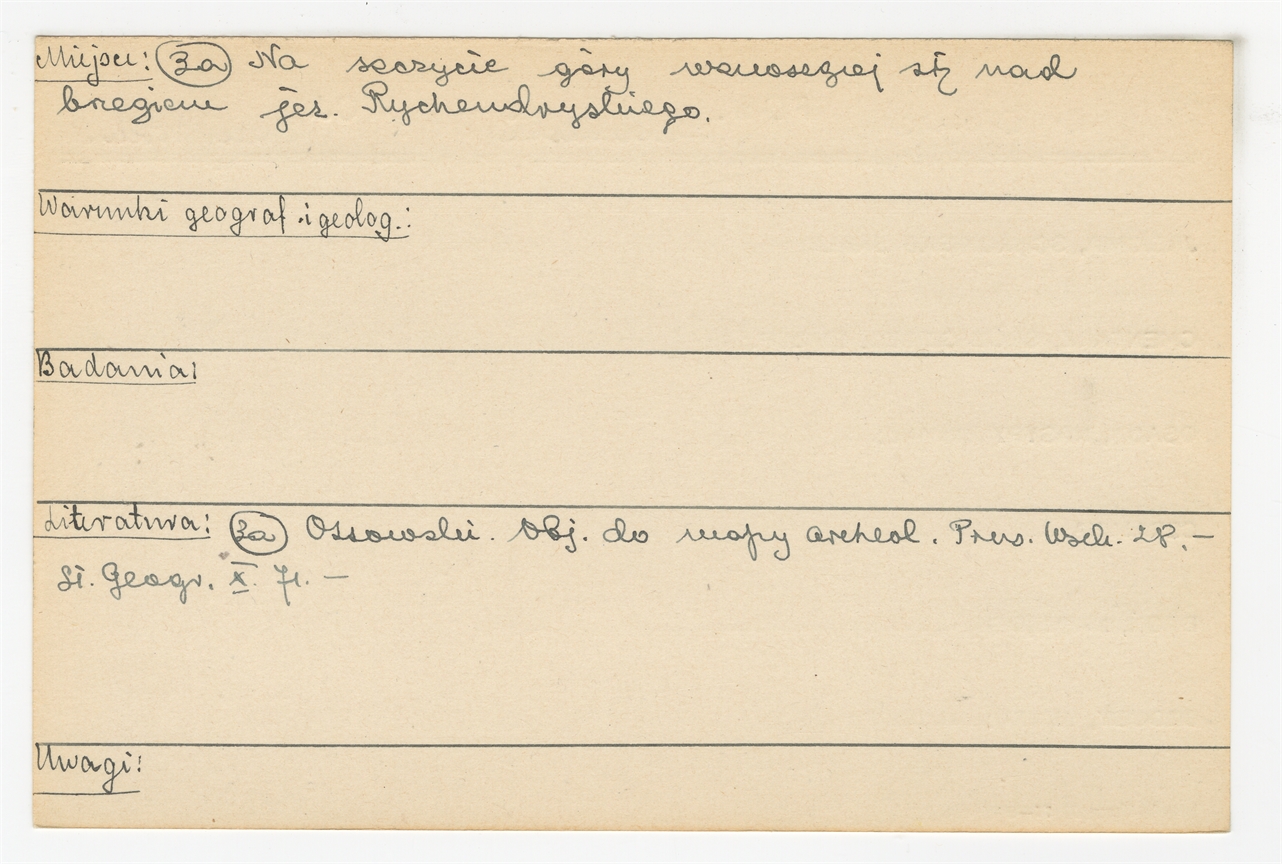 Miejsce: 3a Na szczycie góry wznoszącej się nad
brzegiem jez. Rychendryskiego.
Warunki geograf. i geolog.:
Badania:
Literatura: 3a Ossowski. Obj. do mapy archeol. Prus. Wsch. 28. —
Sł. Geogr. X. 71. —
Uwagi: